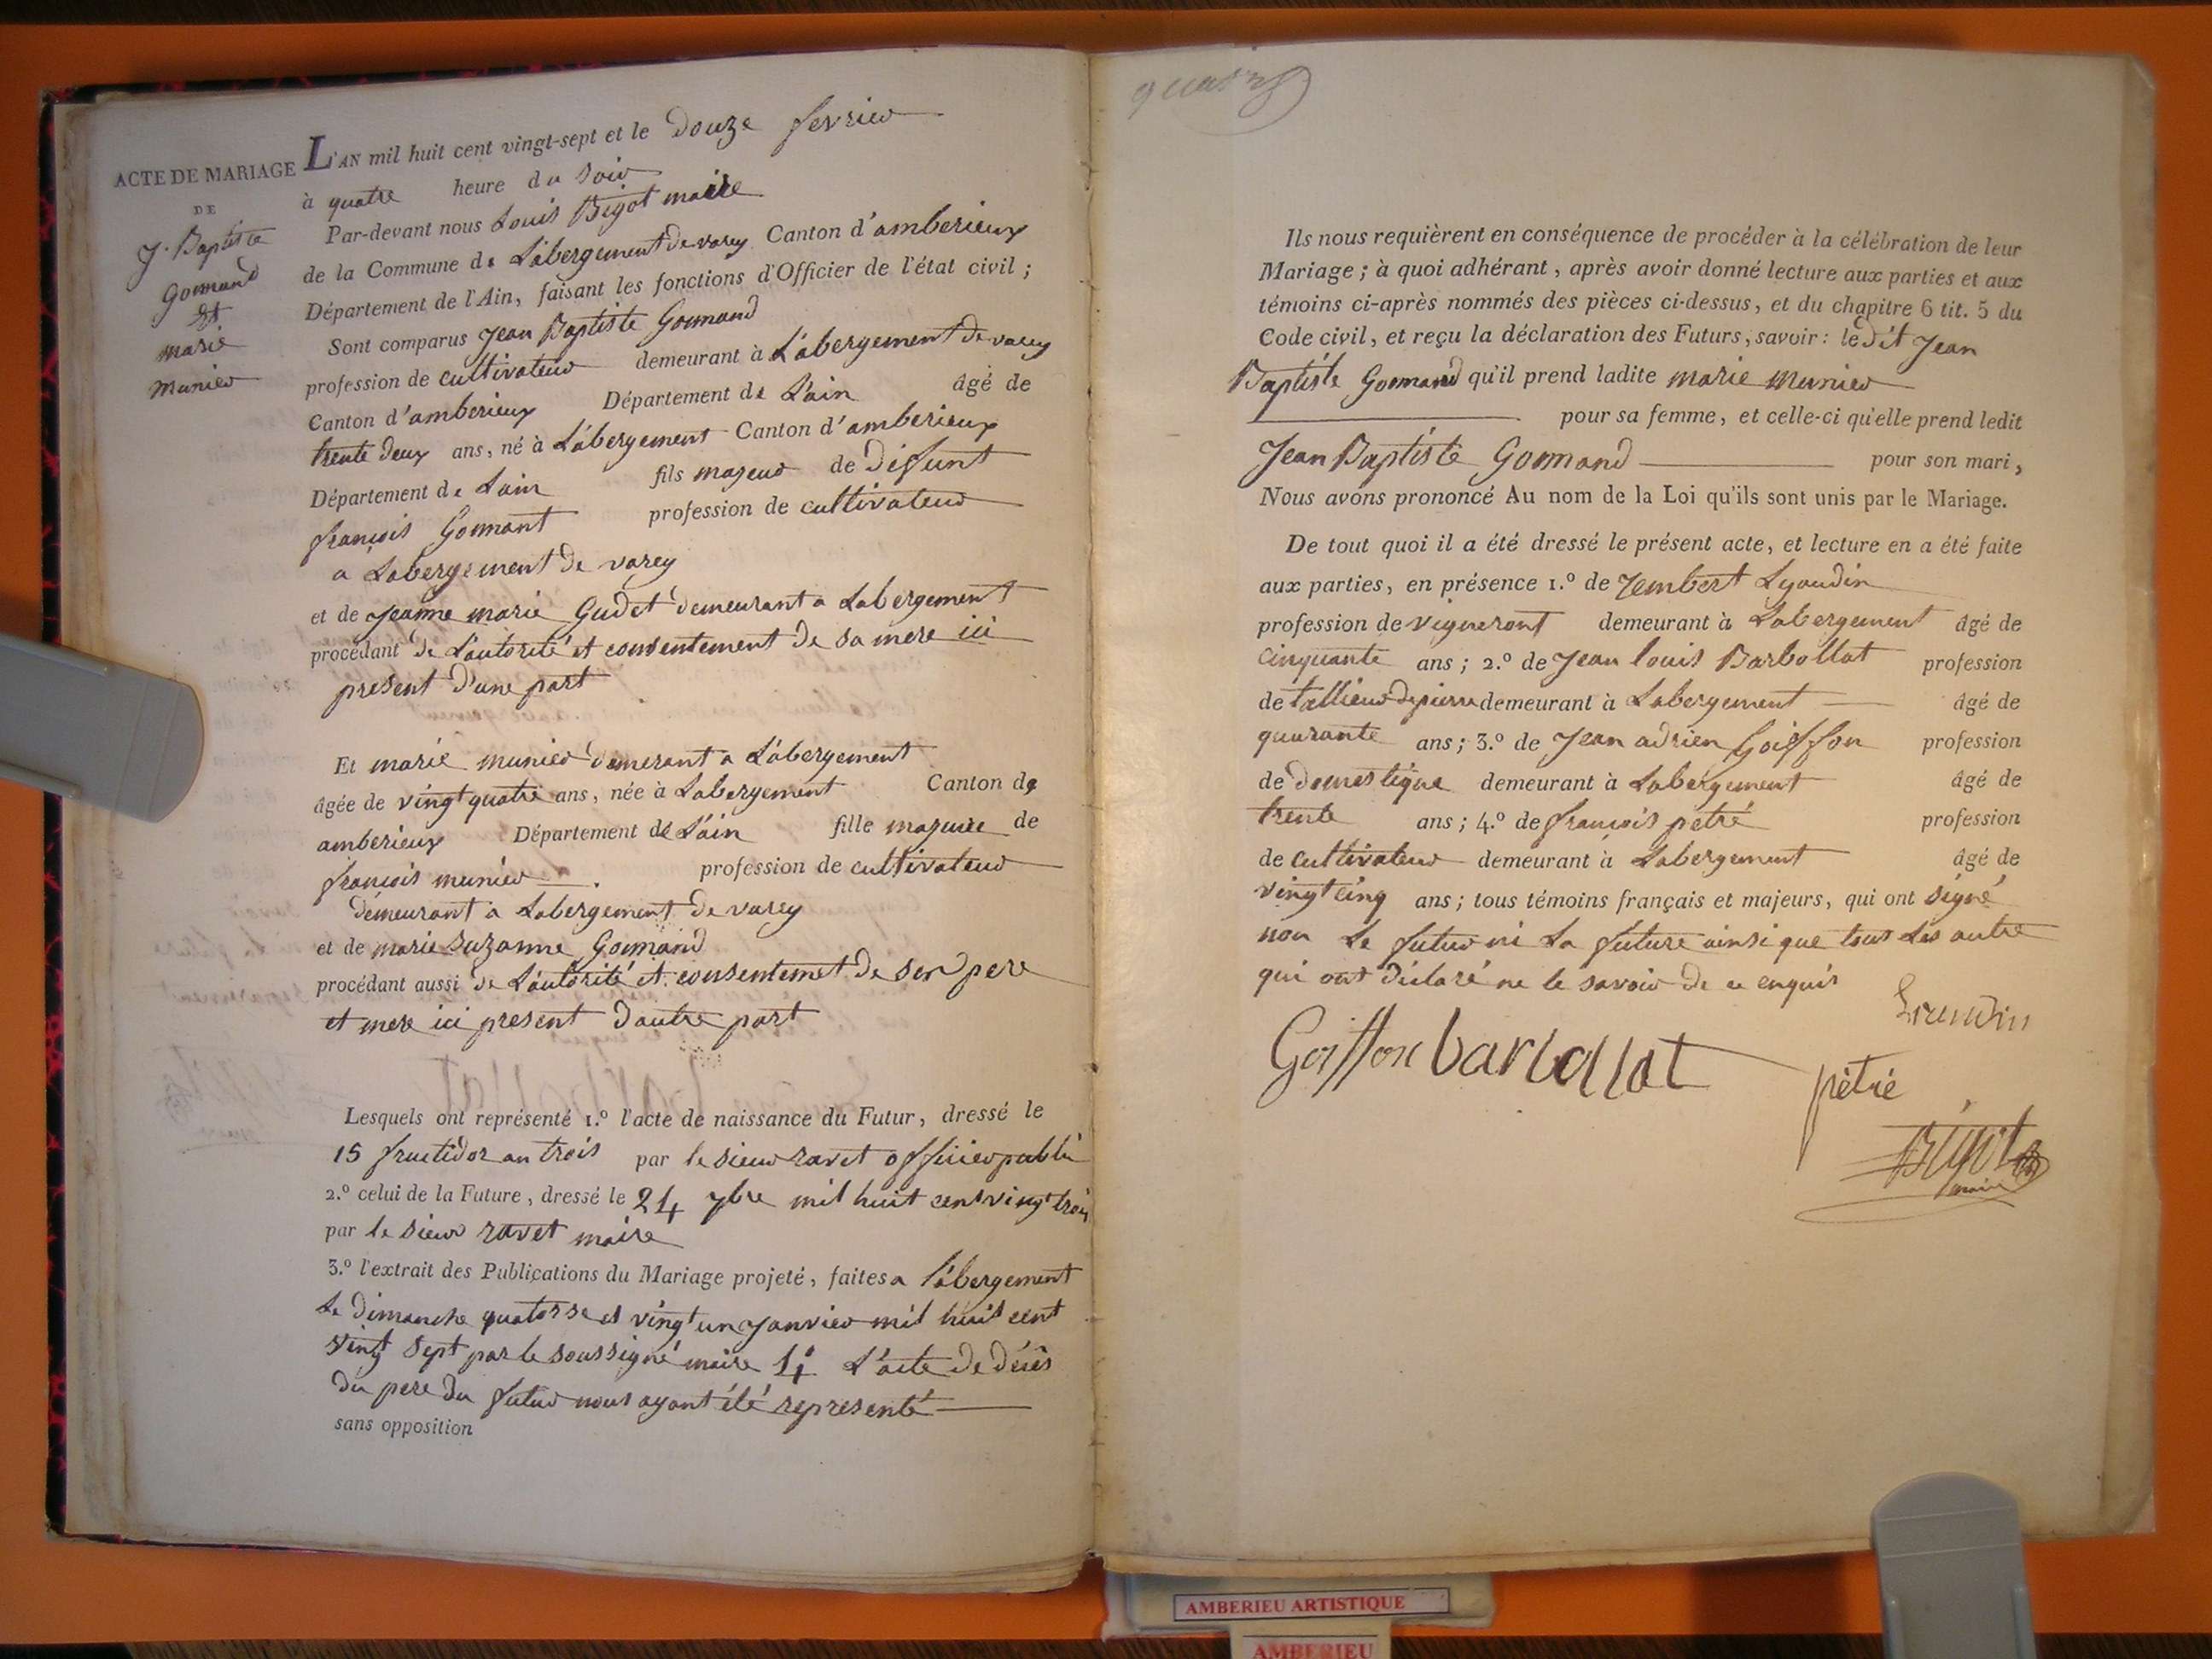 ACTE DE MARIAGE
DE
J. Baptiste
Gormand
et
marie
munier
L'AN mil huit cent vingt-sept et le douze fevrier
à quatre heure du soir
Par-devant nous Louis Bigot maire
de la Commune de Labergement de varey Canton d'amberieux
Département de l'Ain, faisant les fonctions d'Officier de l'état civil ;
Sont comparus Jean Baptiste Gormand
profession de cultivateur demeurant à Labergement de varey
Canton d'amberieux Département de Lain âgé de
trente deux ans, né à Labergement Canton d'amberieux
Département de Lain fils majeur de defunt
françois Gormant profession de cultivateur
a Labergement de varey
et de Jeanne marie Gudet demeurant a Labergement
procédant de L'autorité et consentement de sa mere ici
present d'une part
Et marie munier demerant a Labergement
âgée de vingt quatre ans, née à Labergement Canton de
amberieux Département de Lain fille majeure de
françois munier profession de cultivateur
demeurant a Labergement de varey
et de marie suzanne Gormand
procédant aussi de L'autorité et consentemet de ser pere
et mere ici present d'autre part
Lesquels ont représenté 1.º l'acte de naissance du Futur, dressé le
15 fructidor an trois par le sieur ravet officier public
2.º celui de la Future, dressé le 24 7bre mil huit cent vingt trois
par le sieur ravet maire
3.º l'extrait des Publications du Mariage projeté, faites a labergement
Le dimanche quatorse et vingt un janvier mil huit cent
vingt sept par le soussigné maire 4º L'acte de décès
du pere du futur nous ayant été representé
sans opposition
quatre
Ils nous requièrent en conséquence de procéder à la célébration de leur
Mariage ; à quoi adhérant, après avoir donné lecture aux parties et aux
témoins ci-après nommés des pièces ci-dessus, et du chapitre 6 tit. 5 du
Code civil, et reçu la déclaration des Futurs, savoir : le dit Jean
Baptiste Gormand qu'il prend ladite marie munier
pour sa femme, et celle-ci qu'elle prend ledit
Jean Baptiste Gormand pour son mari,
Nous avons prononcé Au nom de la Loi qu'ils sont unis par le Mariage.
De tout quoi il a été dressé le présent acte, et lecture en a été faite
aux parties, en présence 1.º de Jembert Lyaudin
profession de vigneront demeurant à Labergement âgé de
cinquante ans ; 2.º de Jean louis Barbollat profession
de tallieur de pierre demeurant à Labergement âgé de
quarante ans ; 3.º de Jean adrien Goiffon profession
de domestique demeurant à Labergement âgé de
trente ans ; 4.º de françois petré profession
de cultivateur demeurant à Labergement âgé de
vingt cinq ans ; tous témoins français et majeurs, qui ont signé
non Le futur ni La future ainsi que tous Les autre
qui ont déclaré ne le savoir de ce enquis
Goiffon barbollat
pètré
Bigot
maire
AMBERIEU ARTISTIQUE
AMBERIEU